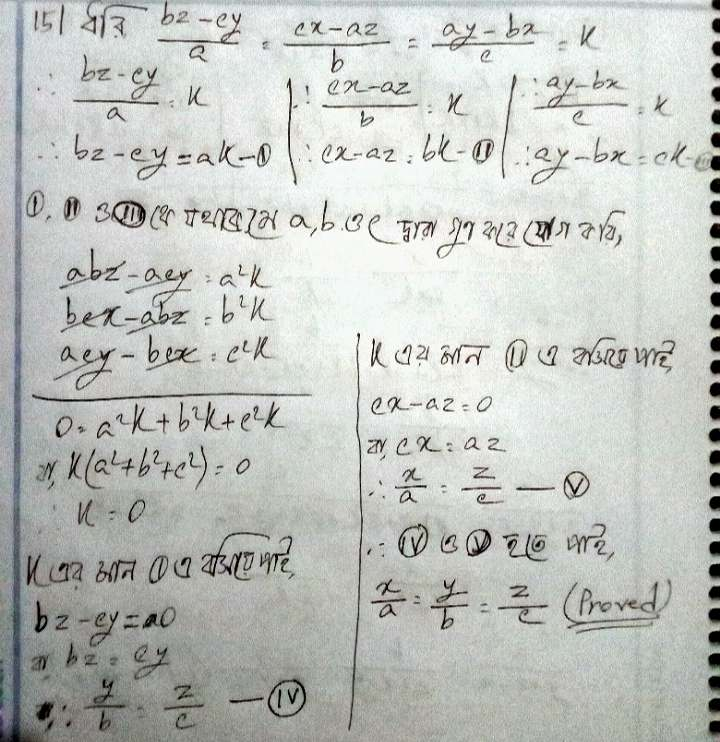 15| ধরি (bz-cy)/a = (cx-az)/b = (ay-bx)/c = K
∴ (bz-cy)/a = K
∴ bz-cy = ak - (i)
∴ (cx-az)/b = K
∴ cx-az = bk - (ii)
∴ (ay-bx)/c = K
∴ ay-bx = ck - (iii)
(i), (ii) ও (iii) কে যথাক্রমে a, b ও c দ্বারা গুণ করে যোগ করি,
abz - acy = a²K
bcx - abz = b²K
acy - bcx = c²K
0 = a²K + b²K + c²K
বা, K(a²+b²+c²) = 0
∴ K = 0
K এর মান (i) এ বসিয়ে পাই,
bz - cy = a0
বা bz = cy
∴ y/b = z/c — (iv)
K এর মান (ii) এ বসিয়ে পাই,
cx - az = 0
বা, cx = az
∴ x/a = z/c — (v)
∴ (iv) ও (v) হতে পাই,
x/a = y/b = z/c (Proved)